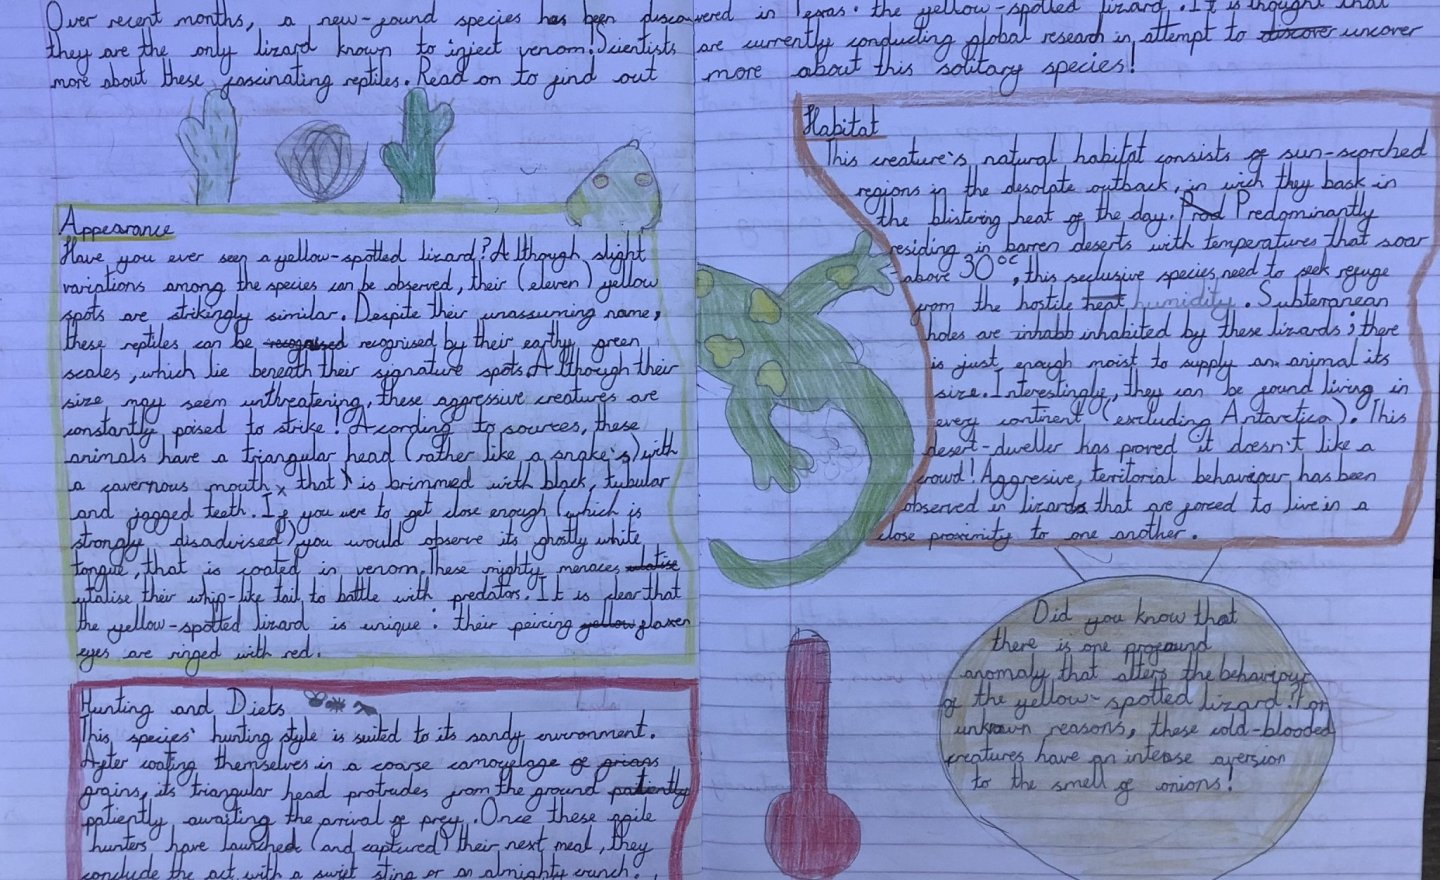 Over recent months, a new-found species has been discovered in Texas: the yellow-spotted lizard. It is thought that
they are the only lizard known to inject venom. Scientists are currently conducting global research in attempt to discover uncover
more about these fascinating reptiles. Read on to find out more about this solitary species!
Appearance
Have you ever seen a yellow-spotted lizard? Although slight
variations among the species can be observed, their (eleven) yellow
spots are strikingly similar. Despite their unassuming name,
these reptiles can be recognised recognised by their earthy green
scales, which lie beneath their signature spots. Although their
size may seem unthreatening, these aggressive creatures are
constantly poised to strike! Acording to sources, these
animals have a triangular head (rather like a snake's) with
a cavernous mouth, that is brimmed with black, tubular
and jagged teeth. If you were to get close enough (which is
strongly disadvised) you would observe its ghostly white
tongue, that is coated in venom. These mighty menaces
utalise their whip-like tail to battle with predators. It is clear that
the yellow-spotted lizard is unique: their peircing yellow flaxen
eyes are ringed with red.
Hunting and Diets
This species' hunting style is suited to its sandy environment.
After coating themselves in a coarse camouflage of
grains, its triangular head protrudes from the ground patiently
patiently awaiting the arrival of prey. Once these agile
hunters have launched (and captured) their next meal, they
conclude the act with a swift sting or an almighty crunch.
Habitat
This creature's natural habitat consists of sun-scorched
regions in the desolate outback, in wich they bask in
the blistering heat of the day. Prod Predominantly
residing in barren deserts with temperatures that soar
above 30°c, this seclusive species need to seek refuge
from the hostile heat humidity. Subterranean
holes are inhabb inhabited by these lizards; there
is just enough moist to supply an animal its
size. Interestingly, they can be found living in
every continent (excluding Antarctica). This
desert-dweller has proved it doesn't like a
crowd! Aggresive, territorial behaviour has been
observed in lizards that are forced to live in a
close proximity to one another.
Did you know that
there is one profound
anomaly that alters the behaviour
of the yellow-spotted lizard? For
unknown reasons, these cold-blooded
creatures have an intense aversion
to the smell of onions!